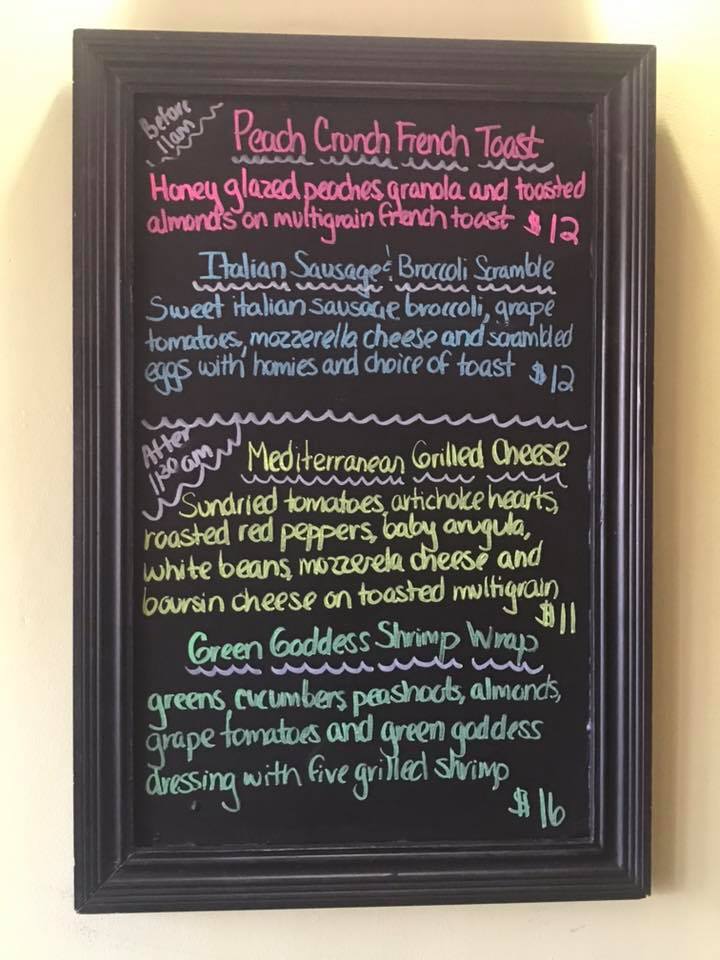 Before
11am
Peach Crunch French Toast
Honey glazed peaches, granola and toasted
almonds on multigrain french toast $12
Italian Sausage & Broccoli Scramble
Sweet italian sausage, broccoli, grape
tomatoes, mozzerella cheese and scrambled
eggs with homies and choice of toast $12
After
11:30am
Mediterranean Grilled Cheese
Sundried tomatoes, artichoke hearts,
roasted red peppers, baby arugula,
white beans, mozzerela cheese and
boursin cheese on toasted multigrain
$11
Green Goddess Shrimp Wrap
greens, cucumbers, peashoots, almonds,
grape tomatoes and green goddess
dressing with five grilled shrimp
$16